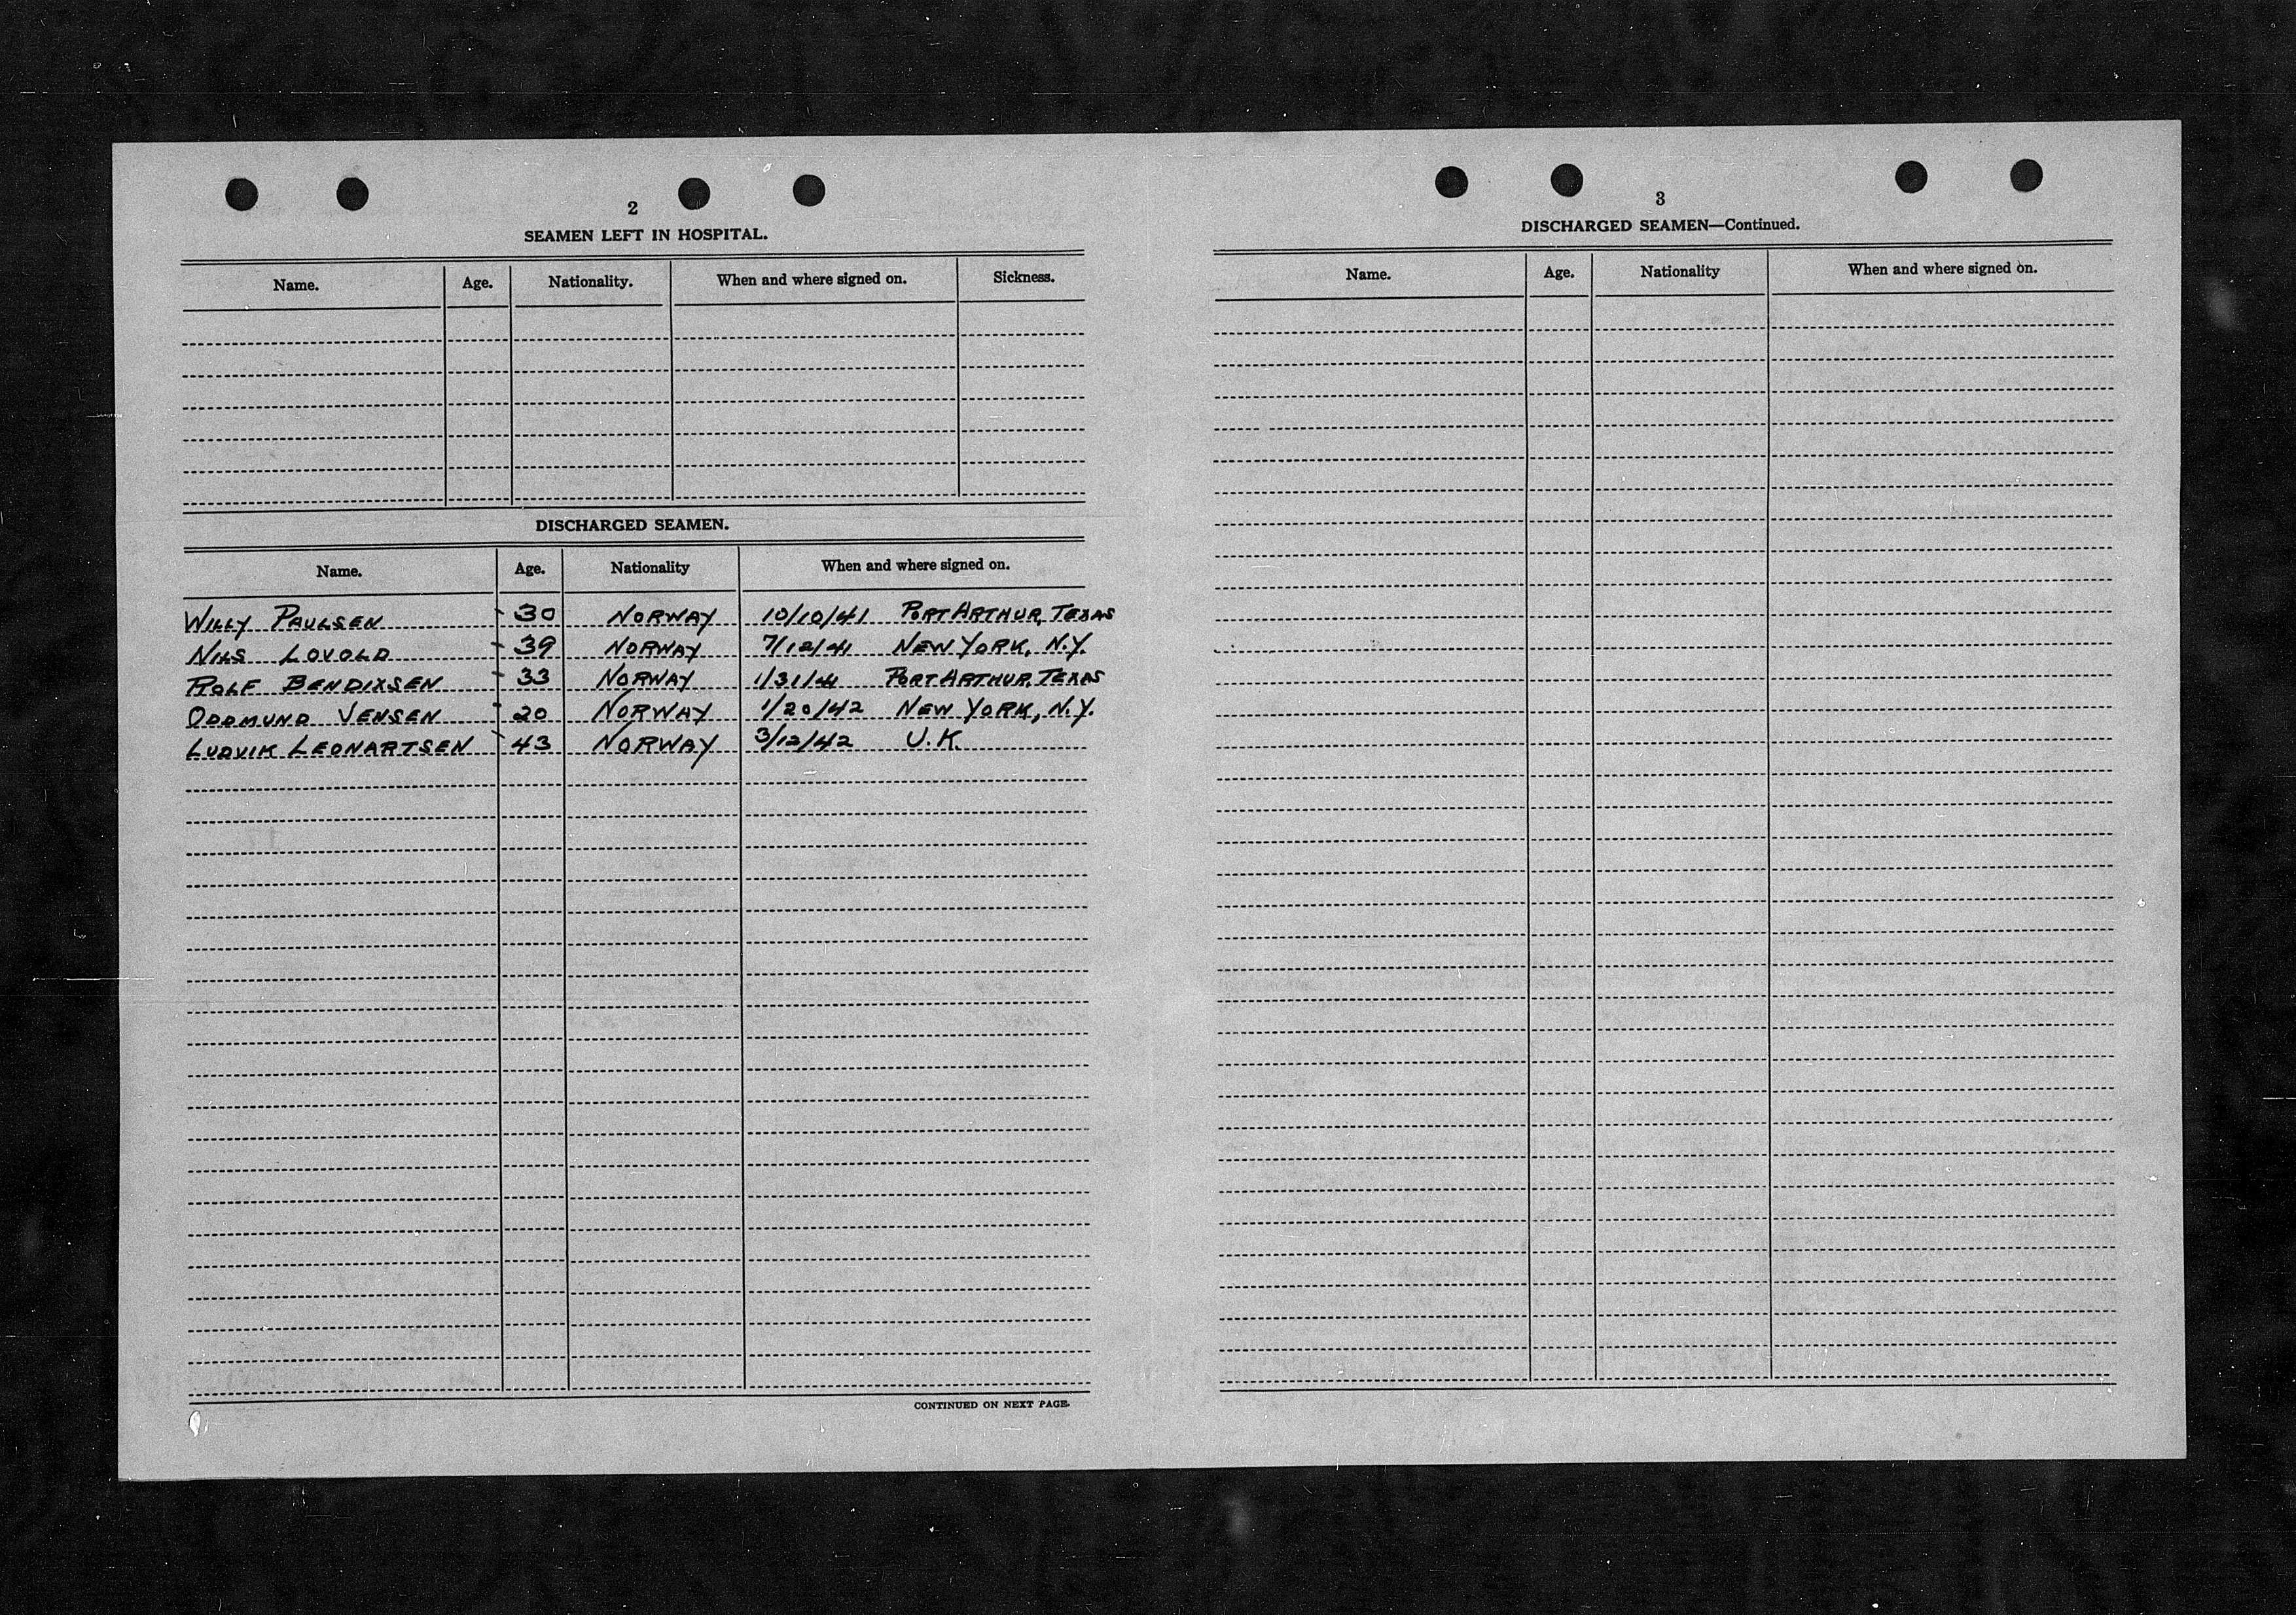 2
SEAMEN LEFT IN HOSPITAL.
Name. Age. Nationality. When and where signed on. Sickness.
DISCHARGED SEAMEN.
Name. Age. Nationality When and where signed on.
WILLY PAULSEN - 30 NORWAY 10/10/41 PORT ARTHUR, TEXAS
NILS LOVOLD - 39 NORWAY 7/12/41 NEW YORK, N.Y.
ROLF BENDIXSEN - 33 NORWAY 1/31/41 PORT ARTHUR, TEXAS
ODDMUND JENSEN - 20 NORWAY 1/20/42 NEW YORK, N.Y.
LUDVIK LEONARTSEN - 43 NORWAY 3/12/42 U.K.
CONTINUED ON NEXT PAGE.
3
DISCHARGED SEAMEN—Continued.
Name. Age. Nationality When and where signed on.